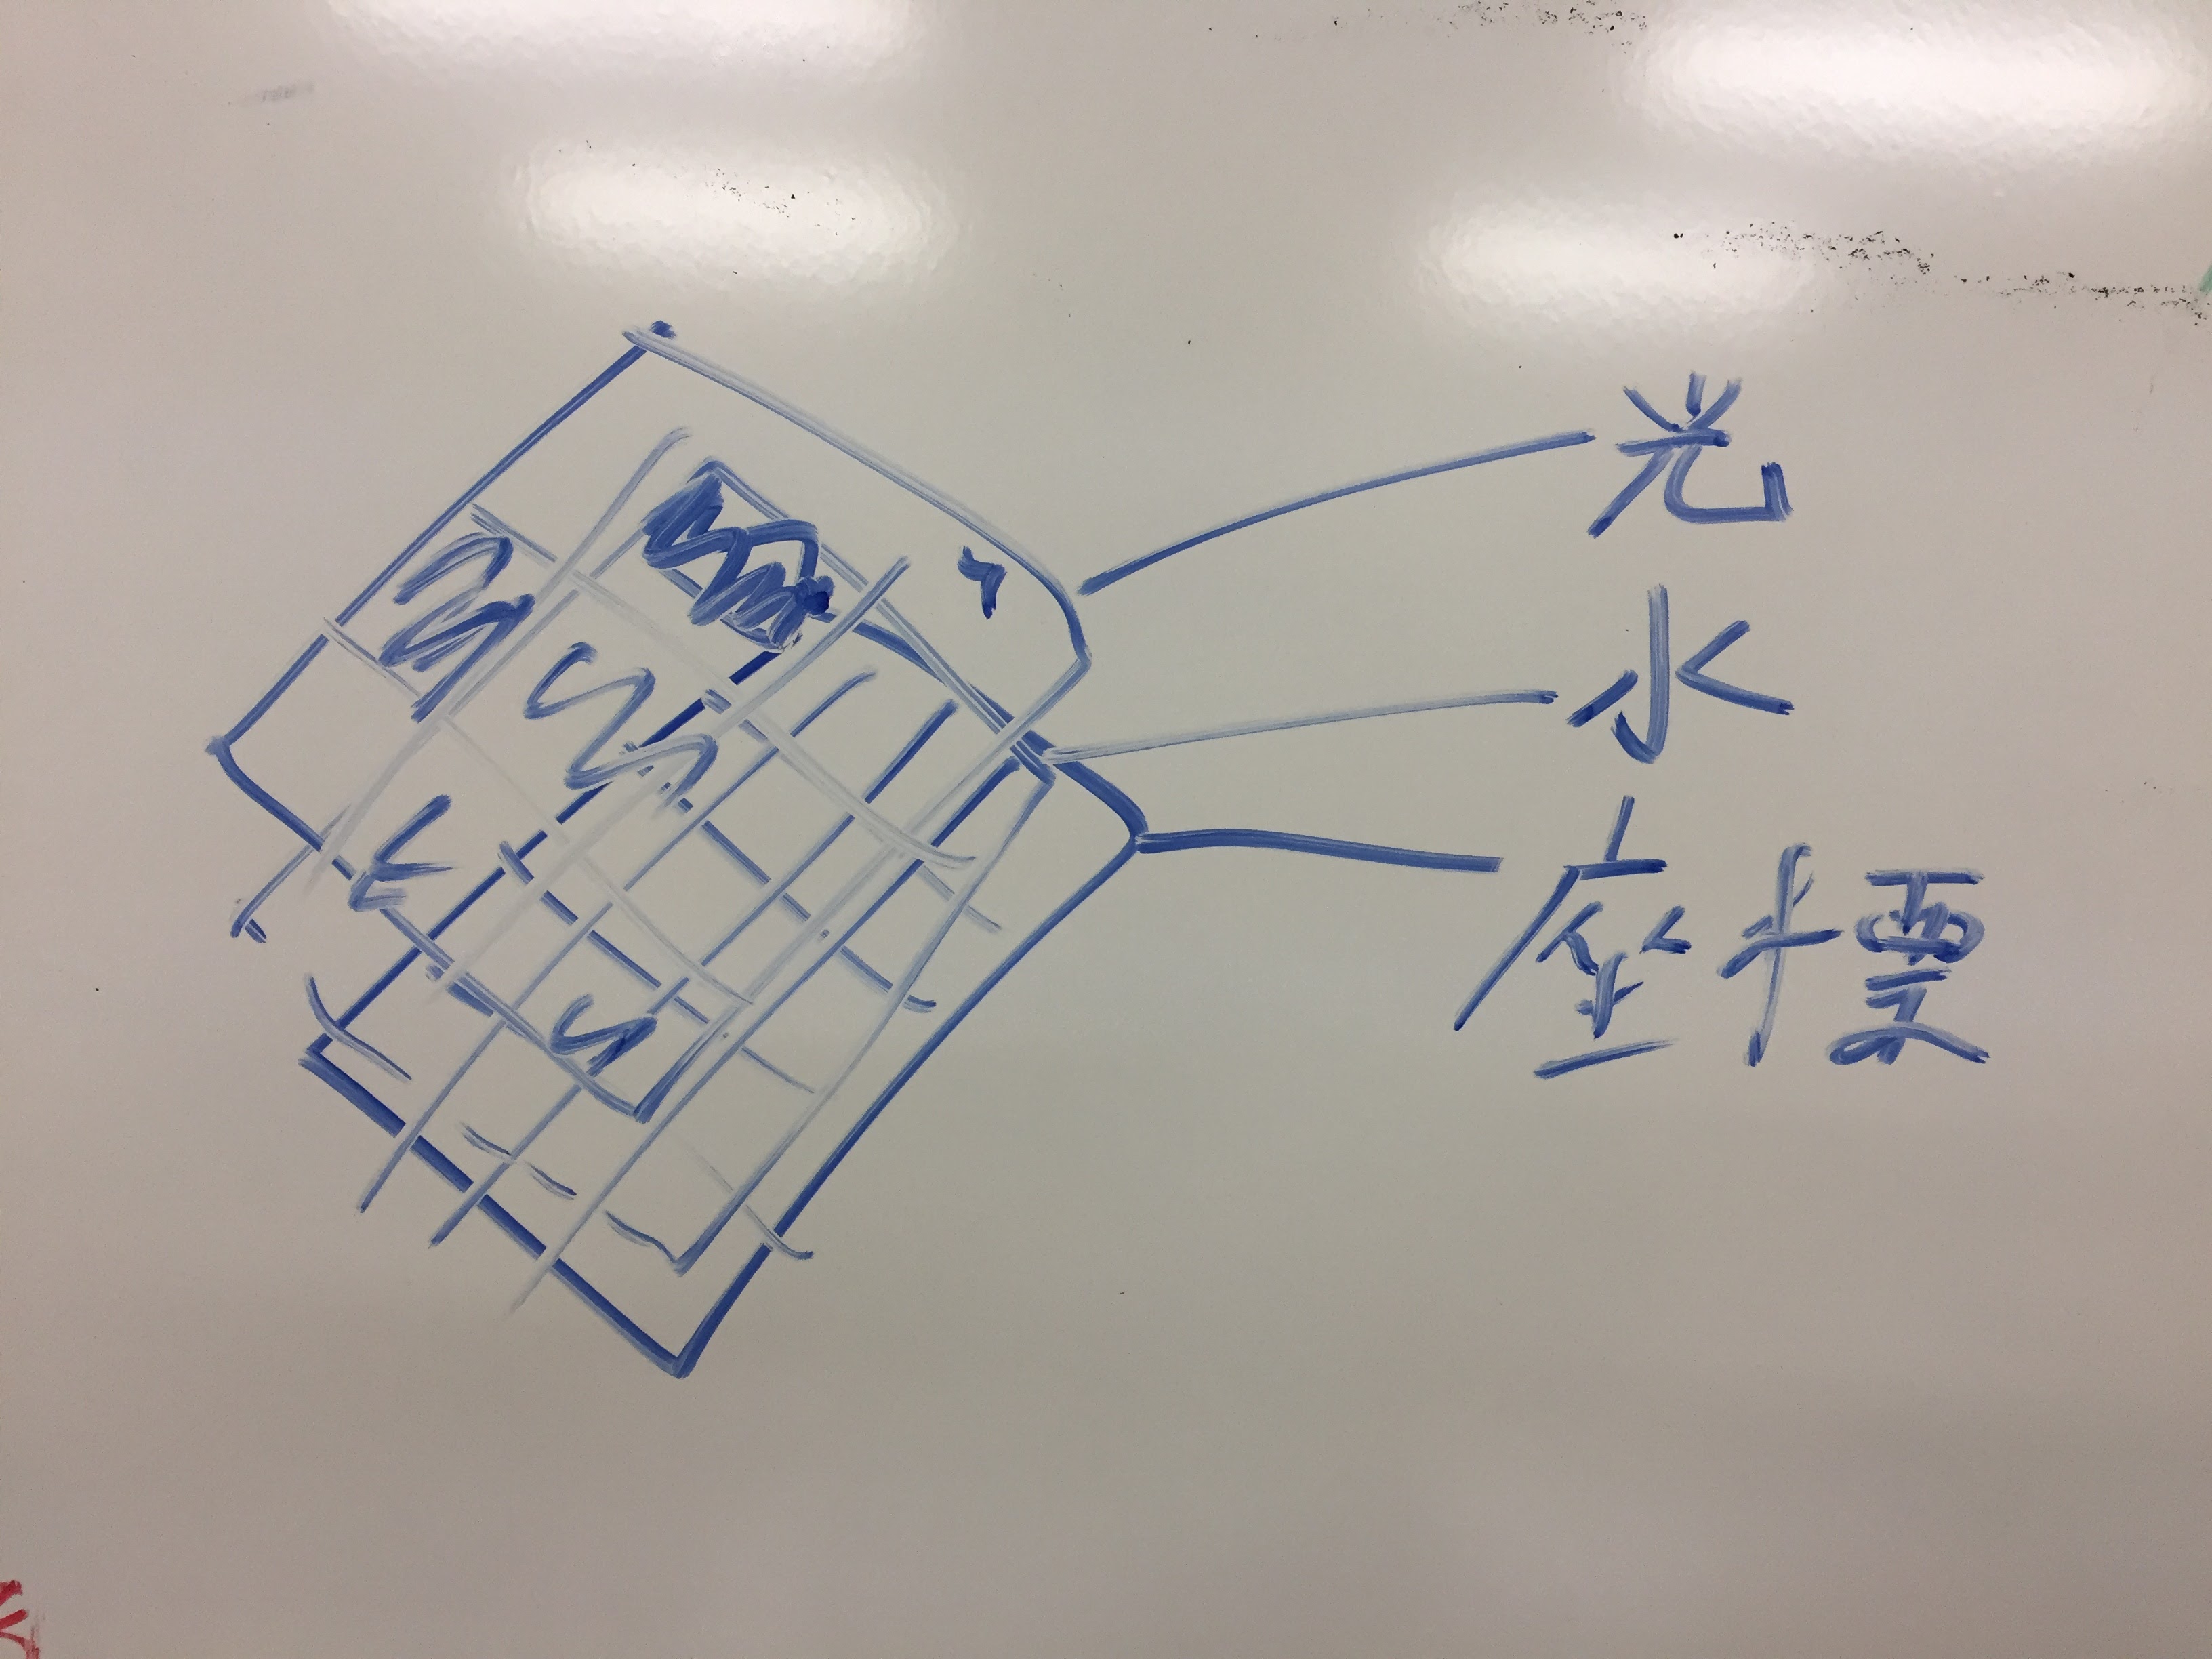 光
水
座標